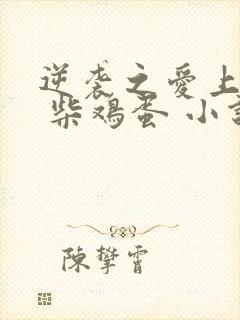 逆袭之愛上
柴鸡蛋 小
陳攀霄